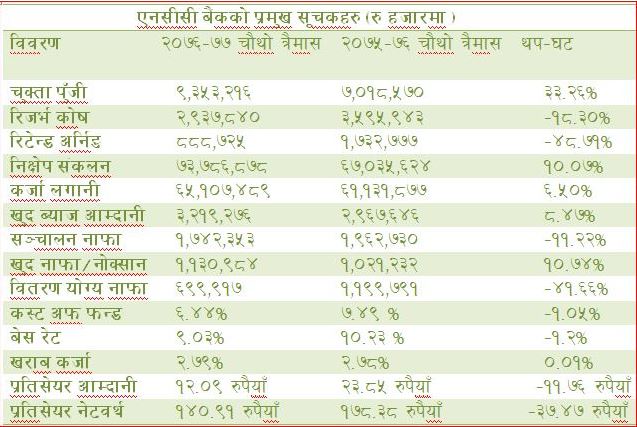 एनसीसी बैंकको प्रमुख सूचकहरु (रु हजारमा )
विवरण २०७६-७७ चौथो त्रैमास २०७५-७६ चौथो त्रैमास थप-घट
चुक्ता पुँजी ९,३५३,२१६ ७,०१८,५७० ३३.२६%
रिजर्भ कोष २,९३७,८४० ३,५९५,९४३ -१८.३०%
रिटेन्ड अर्निङ ८८८,७२५ १,७३२,७७७ -४८.७१%
निक्षेप सकलन ७३,७८६,८७८ ६७,०३५,६२४ १०.०७%
कर्जा लगानी ६५,१०७,४८९ ६१,१३१,८७७ ६.५०%
खुद ब्याज आम्दानी ३,२१९,२७६ २,९६७,६४६ ८.४७%
सञ्चालन नाफा १,७४२,३५३ १,९६२,७३० -११.२२%
खुद नाफा/नोक्सान १,१३०,९८४ १,०२१,२३२ १०.७४%
वितरण योग्य नाफा ६९९,९१७ १,१९९,७९१ -४१.६६%
कस्ट अफ फन्ड ६.४४% ७.४९ % -१.०५%
बेस रेट ९.०३% १०.२३ % -१.२%
खराब कर्जा २.७९% २.७८% ०.०१%
प्रतिसेयर आम्दानी १२.०९ रुपैयाँ २३.८५ रुपैयाँ -११.७६ रुपैयाँ
प्रतिसेयर नेटवर्थ १४०.९१ रुपैयाँ १७८.३८ रुपैयाँ -३७.४७ रुपैयाँ